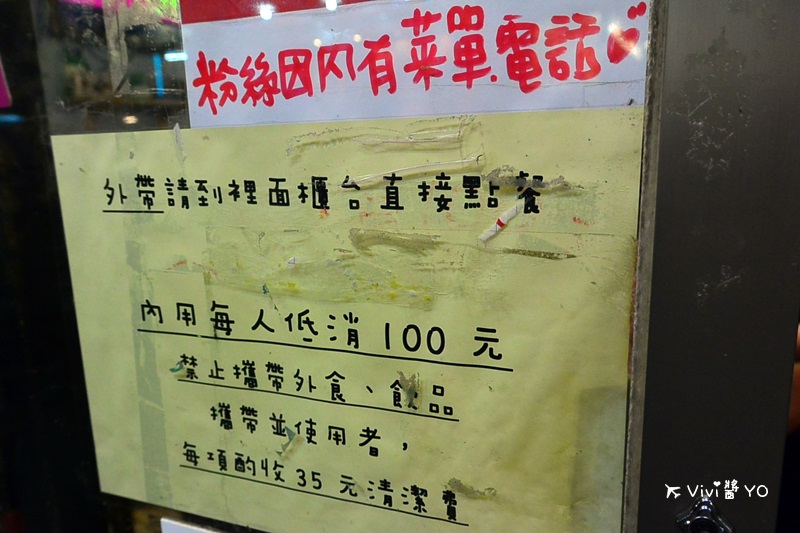 粉絲因內有菜單、電話
外帶請到裡面櫃台直接點餐
內用每人低消100元
禁止攜帶外食、飲品
攜帶並使用者，
每項酌收35元清潔費
Vivi醬YO